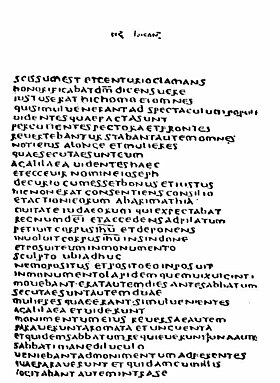 scissum est et centurio clamans
honorificabat dm dicens uere
iustus erat hic homo et omnes
qui simul uenerant ad spectaculum
uidentes quae facta sunt
percutientes pectora et frontes
reuertebantur stabant autem omnes
noti eius a longe et mulieres
quae secutae sunt eum
a galilaea uidentes haec
et ecce uir nomine ioseph
decurio cum esset bonus et iustus
hic non erat consentiens consilio
et actioni eorum ab arimathia
ciuitate iudaeorum qui expectabat
regnum dei et accedens ad pilatum
petiit corpus ihu et deponens
inuoluit corpus ihu in sindone
et posuit eum in monumento
sculpto ubi adhuc
nemo positus et posito eo inposuit
in monumento lapidem quem uix uiginti
mouebant erat autem dies ante sabbatum
secutae sunt autem duae
mulieres quae erant simul uenientes
a galilaea et uiderunt
monimentum eius reuersae autem
parauerunt aromata et unguenta
et quidem sabbatum requieuerunt una autem
sabbati mane diluculo
ueniebant ad monimentum adferentes
quae parauerunt et quidam cum illis
cogitabant autem intra se